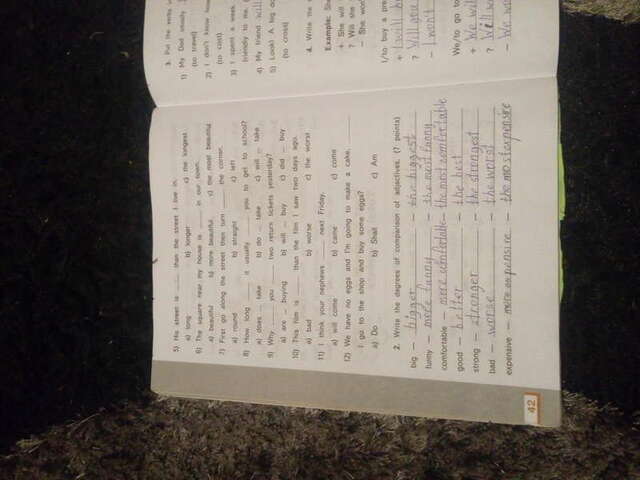 5) His street is ____ than the street I live in.
a) long b) longer c) the longest
6) The square near my house is ____ in our town.
a) beautiful b) more beautiful c) the most beautiful
7) First go along the street then turn ____ the corner.
a) round b) straight c) left
8) How long ____ it usually ____ you to get to school?
a) does ... take b) do ... take c) will ... take
9) Why ____ you ____ two return tickets yesterday?
a) are ... buying b) will ... buy c) did ... buy
10) This film is ____ than the film I saw two days ago.
a) bad b) worse c) the worst
11) I think your nephews ____ next Friday.
a) will come b) came c) come
12) We have no eggs and I'm going to make a cake. ____
I go to the shop and buy some eggs?
a) Do b) Shall c) Am
2. Write the degrees of comparison of adjectives. (7 points)
big — bigger — the biggest
funny — more funny — the most funny
comfortable — more comfortable — the most comfortable
good — better — the best
strong — stronger — the strongest
bad — worse — the worst
expensive — more expensive — the most expensive
42
3. Put the verbs
1) My Dad usually
(to travel)
2) I don't know how
(to cost)
3) I spent a week
friendly to me. (
4) My friend will
5) Look! A big
(to cross)
4. Write the
Example: She
+ She will
? Will she
– She won't
I/to buy a
+ I will
? Will you
– I won't
We/to go to
+ We will
? Will
– We